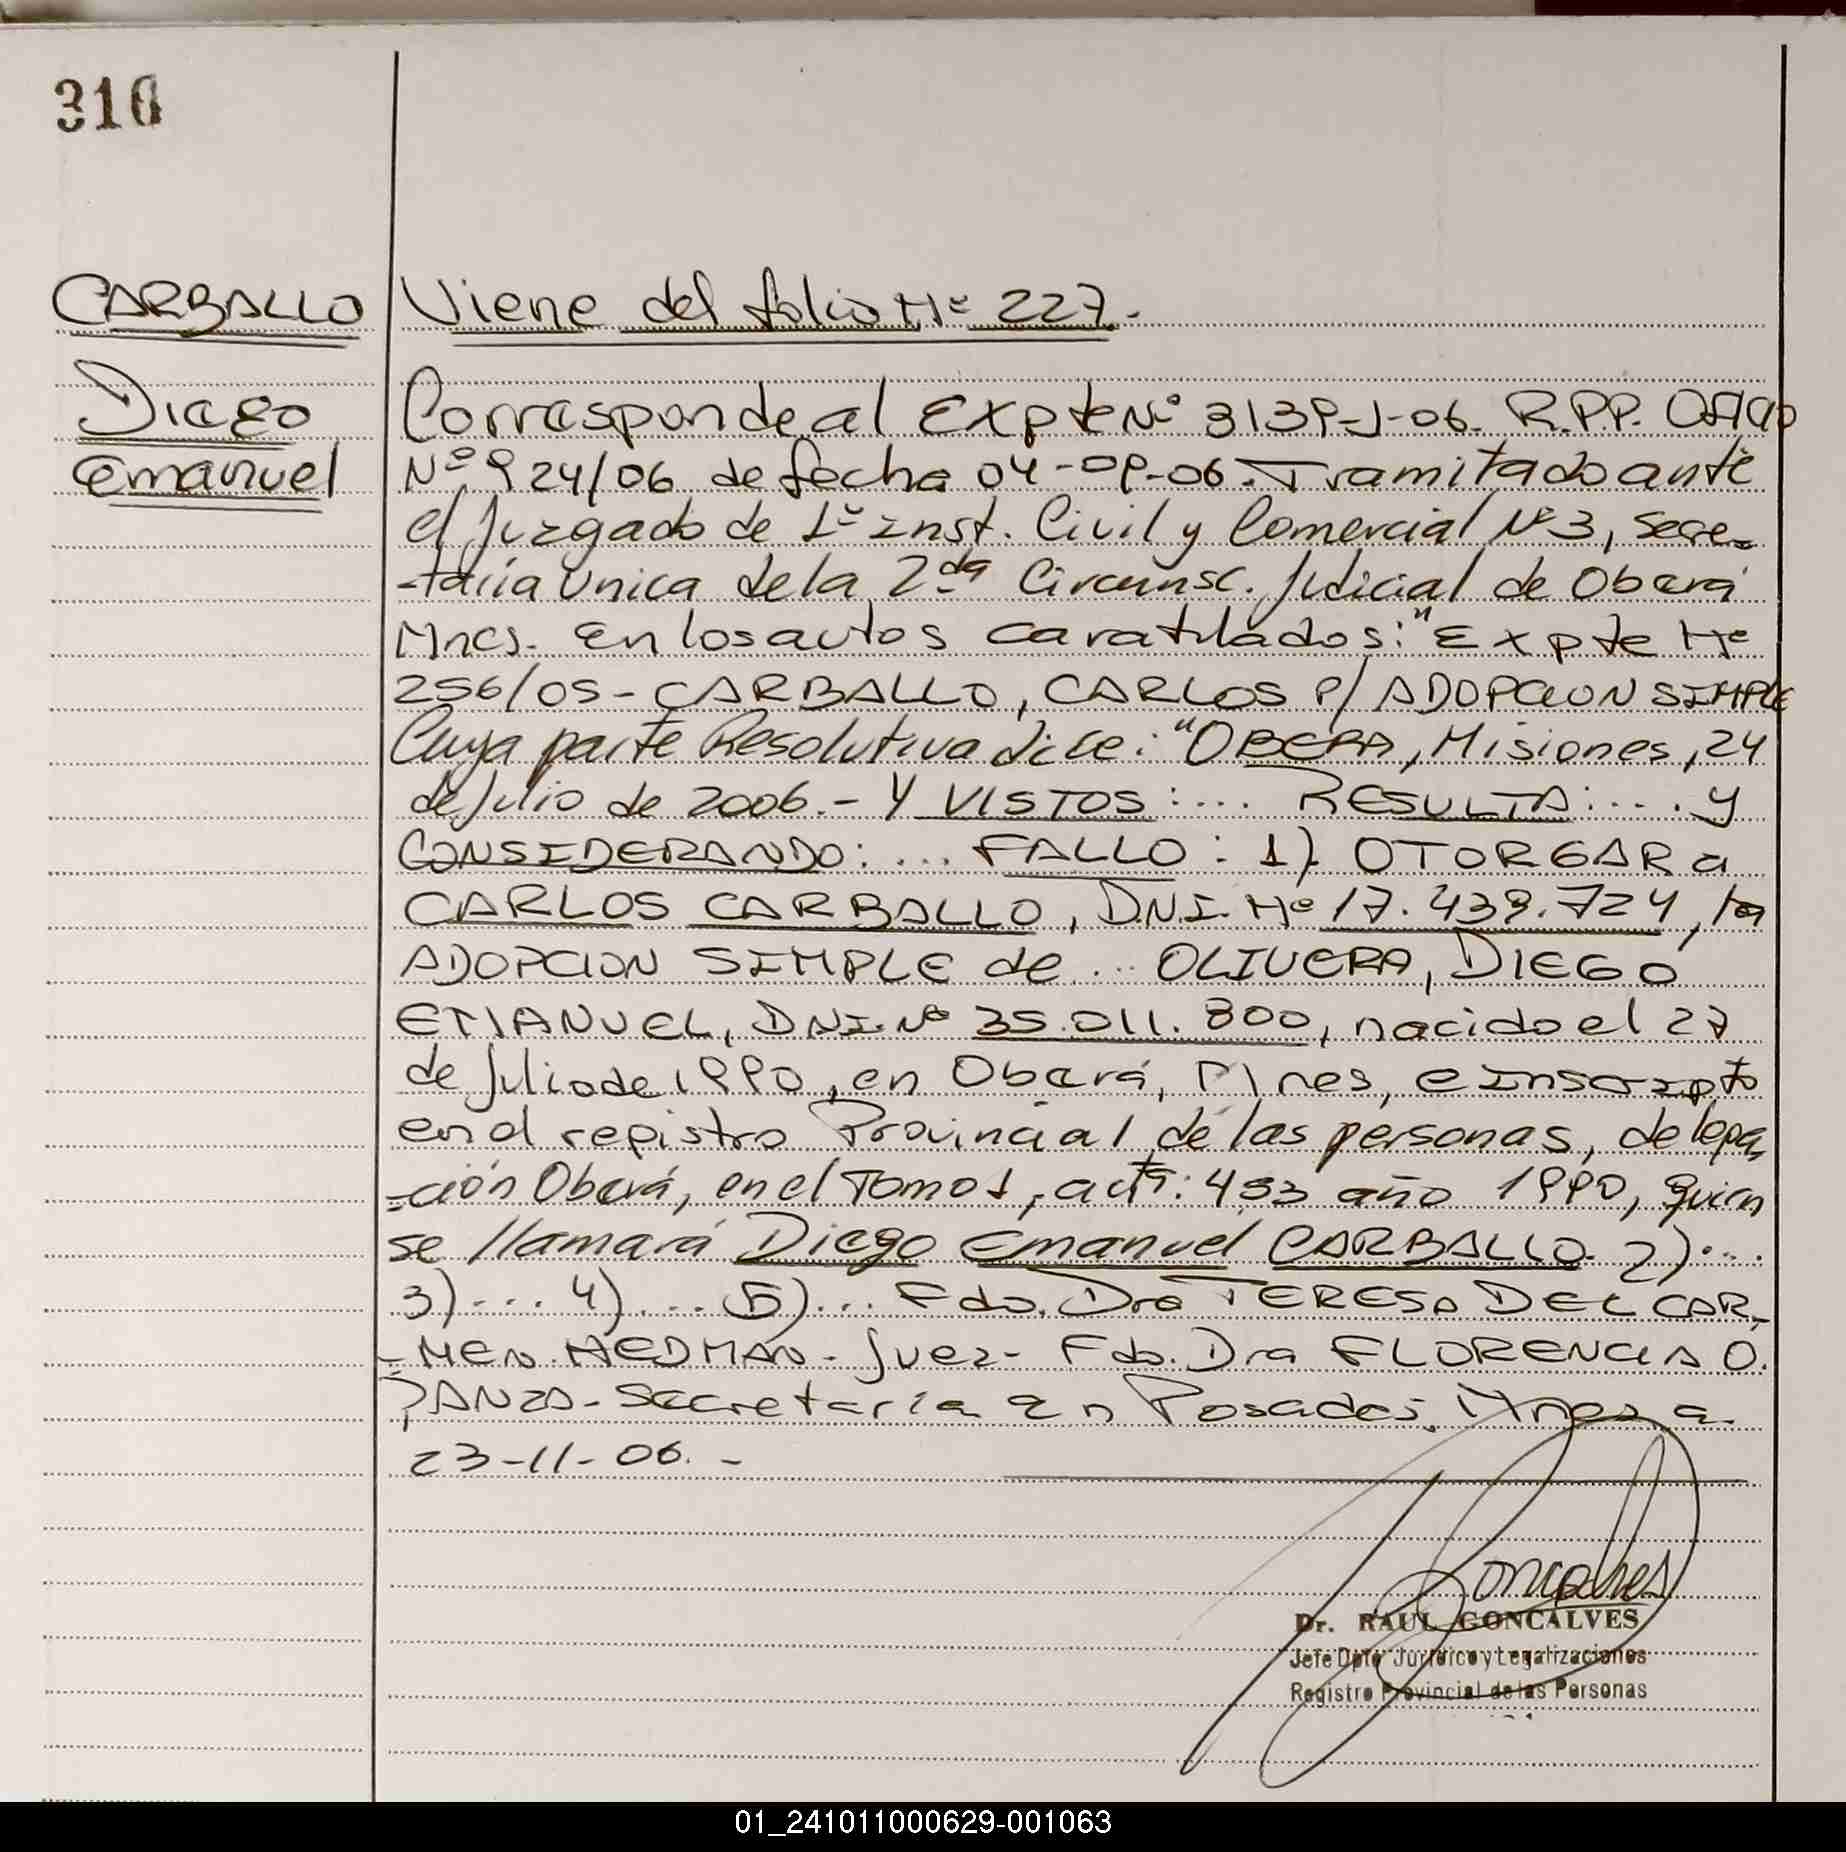 310
CARBALLO
Diego
Emanuel
Viene del folio Nº 227.-
Corresponde al Expte Nº 3139-J-06. R.P.P. Oficio
Nº 924/06 de fecha 04-09-06. Tramitado ante
el Juzgado de 1º Inst. Civil y Comercial Nº 3, Secre-
-taría Unica de la 2da Circunsc. Judicial de Oberá
Mnes. En los autos caratulados: "Expte Nº
256/05 - CARBALLO, CARLOS P/ ADOPCION SIMPLE
Cuya parte Resolutiva dice: "OBERA, Misiones, 24
de Julio de 2006.- Y VISTOS:.... RESULTA:.... Y
CONSIDERANDO:.... FALLO: 1) OTORGAR a
CARLOS CARBALLO, D.N.I. Nº 17.439.724, la
ADOPCION SIMPLE de... OLIVERA, DIEGO
EMANUEL, DNI. Nº 35.011.800, nacido el 27
de Julio de 1990, en Oberá, Mnes, e Inscripto
en el registro Provincial de las personas, delega-
-ción Oberá, en el Tomo 1, acta: 493 año 1990, quien
se llamará Diego Emanuel CARBALLO. 2)....
3)... 4)... 5)... Fdo. Dra TERESA DEL CAR-
-MEN HEDMAN - Juez - Fdo. Dra FLORENCIA O.
PANZA - Secretaría En Posadas, Mnes a
23-11-06.-
Goncalves
Dr. RAUL GONCALVES
Jefe Dpto Jurídico y Legalizaciones
Registro Provincial de las Personas
01_241011000629-001063